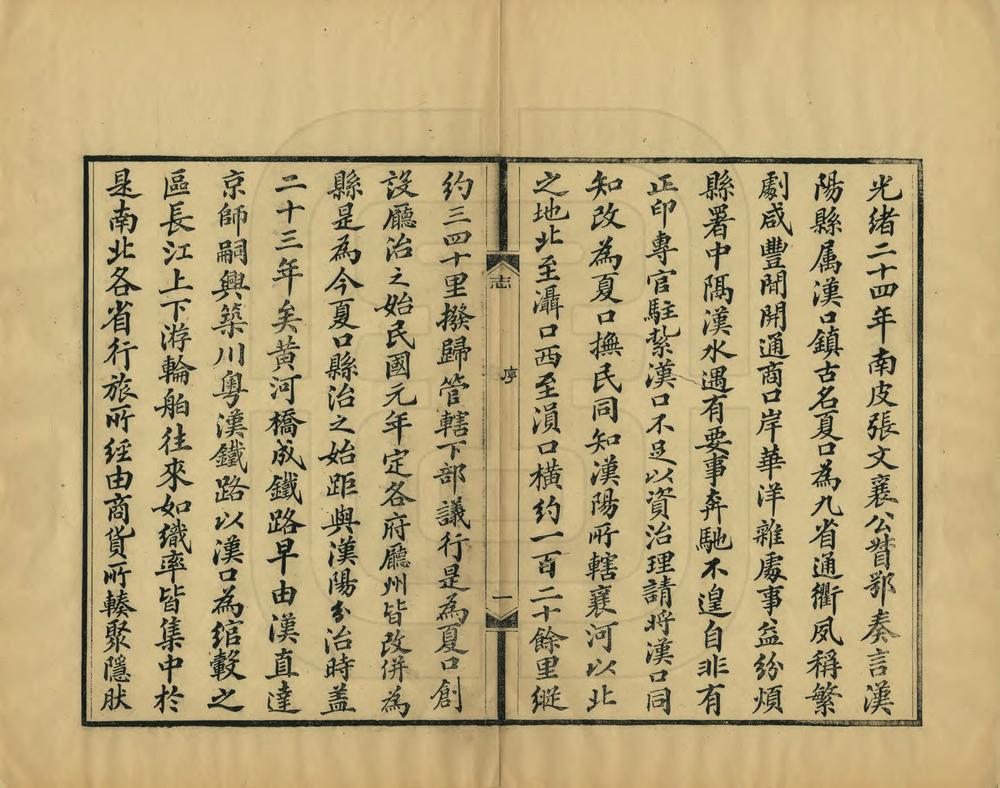 光緒二十四年南皮張文襄公督鄂奏言漢
陽縣属漢口鎮古名夏口為九省通衢夙稱繁
劇咸豐間開通商口岸華洋雜處事益紛煩
縣署中隔漢水遇有要事奔馳不遑自非有
正印專官駐紮漢口不足以資治理請將漢口同
知改為夏口撫民同知漢陽所轄襄河以北
之地北至灄口西至溳口橫約一百二十餘里縱
志
序
一
約三四十里撥歸管轄下部議行是為夏口創
設廳治之始民國元年定各府廳州皆改併為
縣是為今夏口縣治之始距與漢陽分治時蓋
二十三年矣黃河橋成鐵路早由漢直達
京師嗣興築川粵漢鐵路以漢口為綰轂之
區長江上下游輪舶往來如織率皆集中於
是南北各省行旅所經由商貨所輳聚隱肰